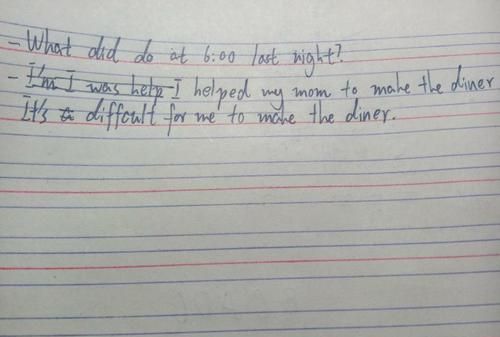 - What did do at 6:00 last night?
- I'm I was help I helped my mom to make the diner
It's a diffcult for me to make the diner.